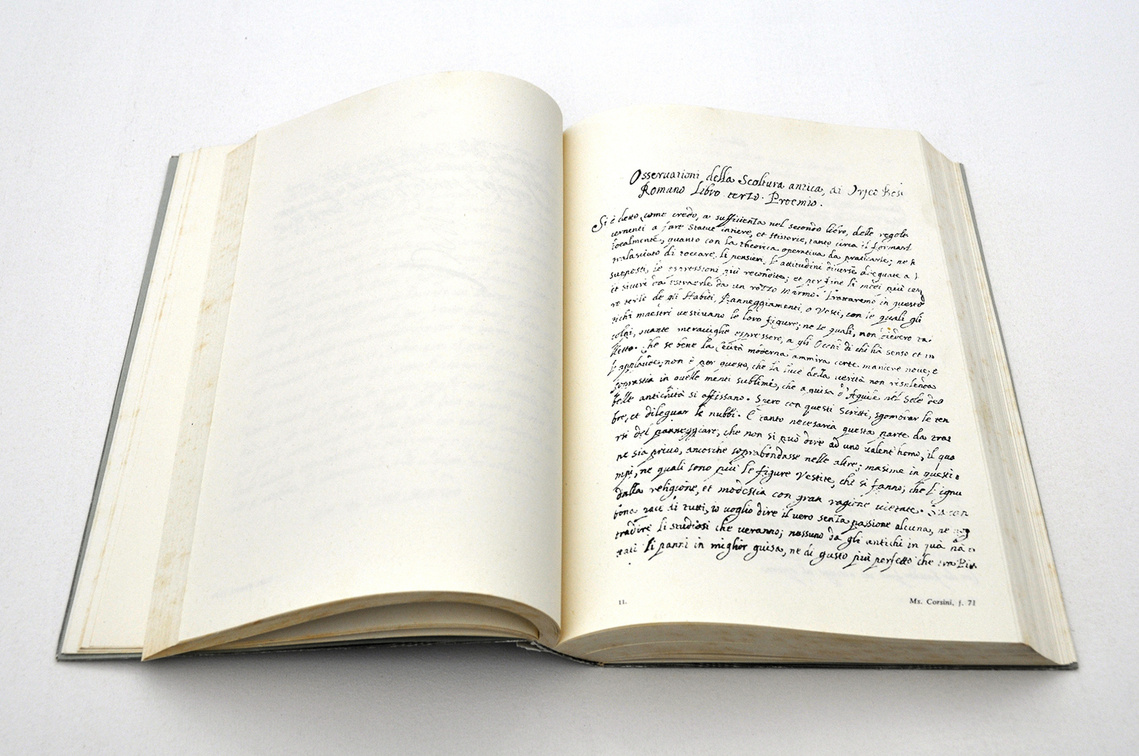 Osservationi della Scoltura antica, di Orfeo
Romano Libro terzo. Proemio.
Si è detto, come credo, a sufficienza nel secondo libro, delle regole
a fare statue intiere, et Historie, tanto circa il
localmente, quanto con la theorica operativa da praticarle; ne
tralasciato di toccare, li pensieri, l'attitudini diverse adequate a
supposti, le espressioni più recondite; et per fine li modi più
et sicuri da un rozzo marmo. Trattaremo in questo
de gli Habiti, Panneggiamenti, o Vesti, con le quali gli
maestri vestivano le loro figure; ne le quali, non
quante meraviglie espressero, a gli Occhi di chi hà senso et in
Che se bene la Città moderna ammira certe maniere nove; e
l'applaude; non è per questo, che la luce della verità non risplenda
in quelle menti sublimi, che a guisa d'Aquile nel Sole
belle antichità si affissano. Spero con questi Scritti, sgombrar le ten
bre, et dileguar le nubbi. È tanto necesaria questa parte
del panneggiare, che non si può dire ad uno valent'homo, il qua
ne sia privo, ancorche soprabondasse nelle altre; masime in questi
ne quali sono più le figure Vestite, che si fanno; che l'ignu
dalla religione, et modestia con gran ragione vietate.
da tutti, io voglio dire il vero senza pasione alcuna, ne
tradire li studiosi che veranno; nessuno da gli antichi in quà
li panni in miglior guisa, ne di gusto più perfetto che
11.
Ms. Corsini, f. 71